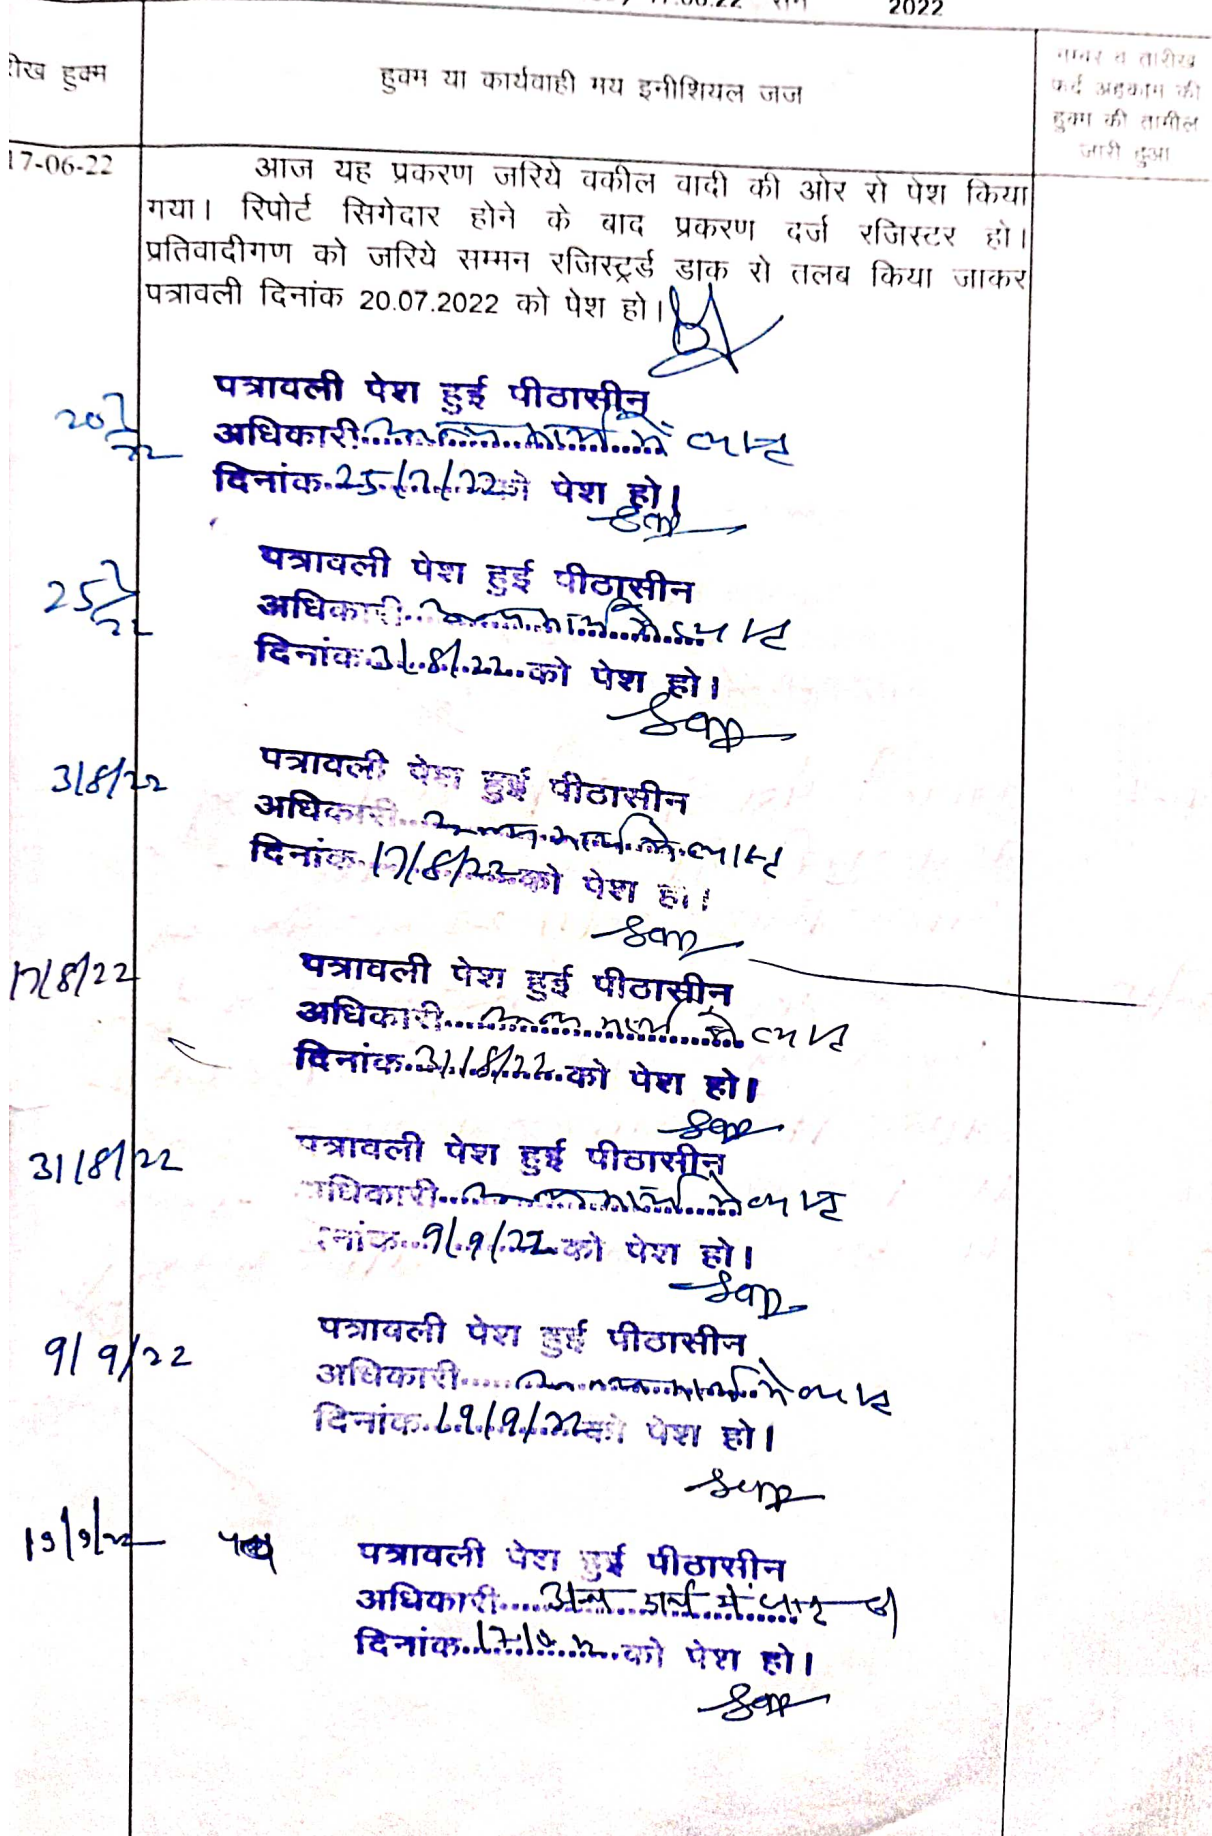 17.06.22 सन 2022
तारीख हुक्म
हुक्म या कार्यवाही मय इनीशियल जज
नम्बर व तारीख
फर्द अहकाम की
हुक्म की तामील
जारी हुआ
17-06-22
आज यह प्रकरण जरिये वकील वादी की ओर से पेश किया
गया। रिपोर्ट सिगेदार होने के बाद प्रकरण दर्ज रजिस्टर हो।
प्रतिवादीगण को जरिये सम्मन रजिस्ट्रर्ड डाक से तलब किया जाकर
पत्रावली दिनांक 20.07.2022 को पेश हो।
20/7/22
पत्रावली पेश हुई पीठासीन
अधिकारी अन्य कार्य में व्यस्त
दिनांक 25/7/22 को पेश हो।
25/7/22
पत्रावली पेश हुई पीठासीन
अधिकारी अन्य कार्य में व्यस्त
दिनांक 3/8/22 को पेश हो।
3/8/22
पत्रावली पेश हुई पीठासीन
अधिकारी अन्य कार्य में व्यस्त
दिनांक 17/8/22 को पेश हो।
17/8/22
पत्रावली पेश हुई पीठासीन
अधिकारी अन्य कार्य में व्यस्त
दिनांक 31/8/22 को पेश हो।
31/8/22
पत्रावली पेश हुई पीठासीन
अधिकारी अन्य कार्य में व्यस्त
दिनांक 9/9/22 को पेश हो।
9/9/22
पत्रावली पेश हुई पीठासीन
अधिकारी अन्य कार्य में व्यस्त
दिनांक 19/9/22 को पेश हो।
19/9/22
पत्रावली पेश हुई पीठासीन
अधिकारी अन्य कार्य में व्यस्त
दिनांक को पेश हो।